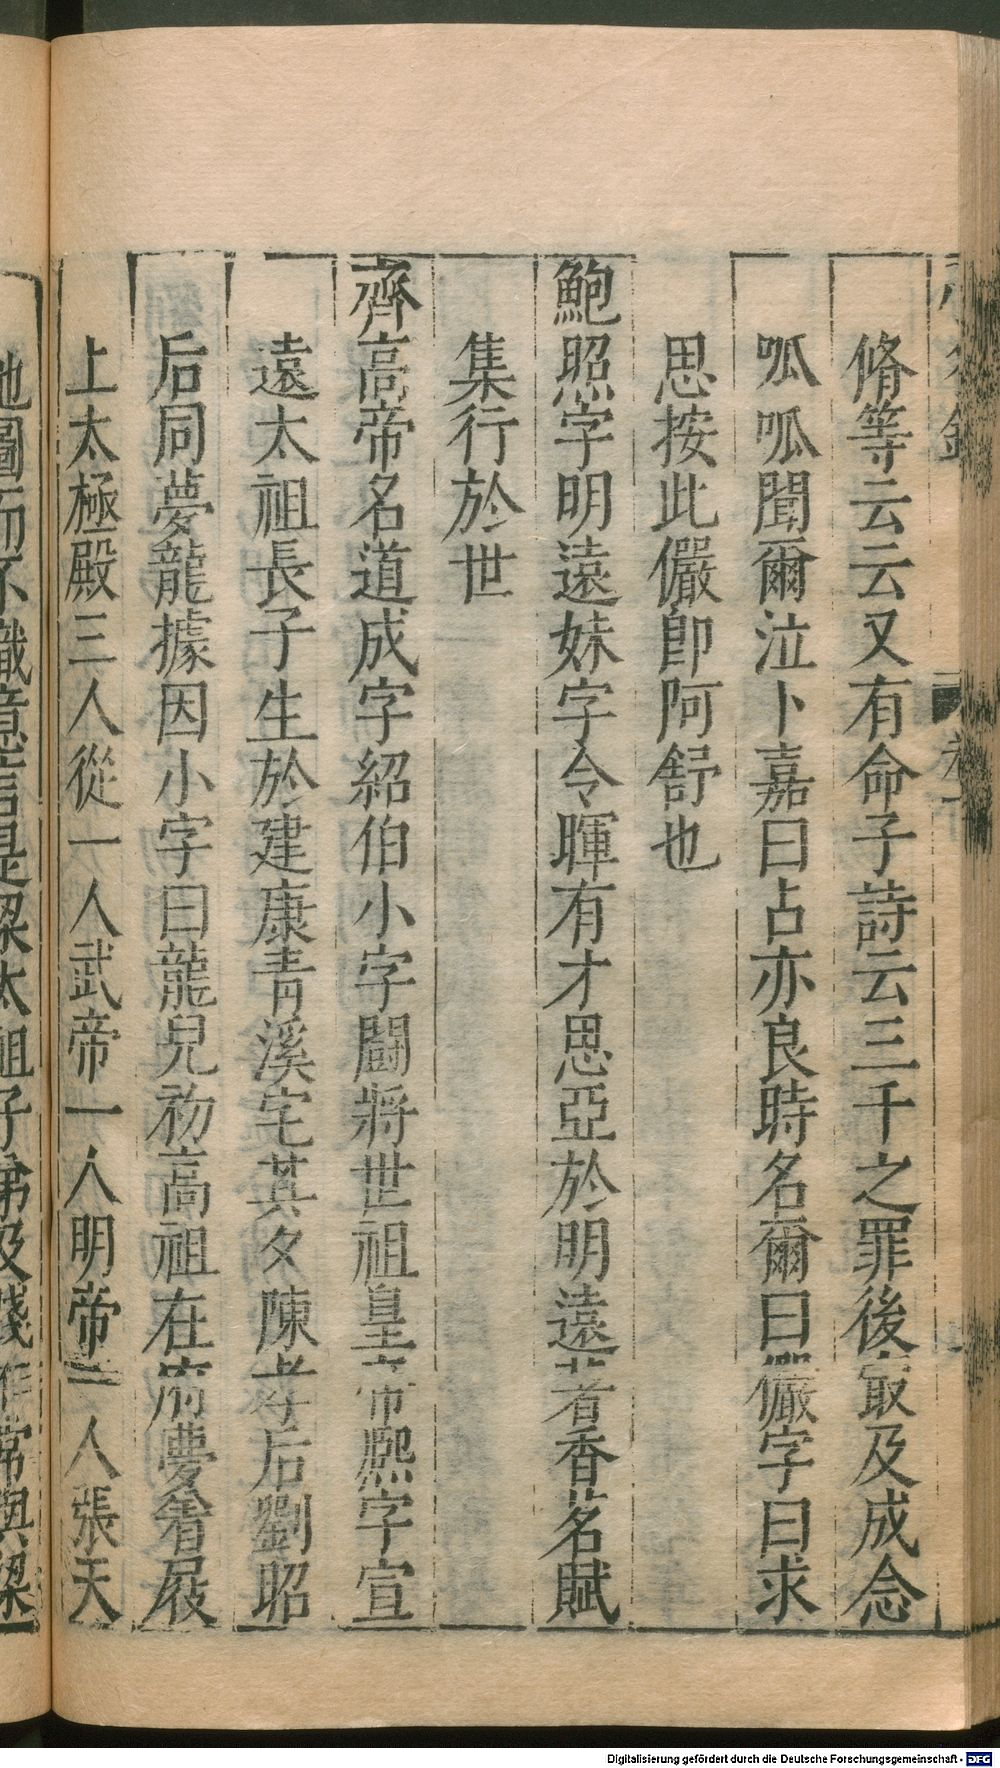 脩等云云又有命子詩云三千之罪後寂及成念
呱呱聞爾泣卜嘉曰占亦良時名爾曰儼字曰求
思按此儼卽阿舒也
鮑照字明遠妹字令暉有才思亞於明遠著香茗賦
集行於世
齊高帝名道成字紹伯小字鬭將世祖皇帝熙字宣
遠太祖長子生於建康青溪宅其夕陳孝后劉昭
后同夢龍據因小字曰龍兒初高祖在 夢着屐
上太極殿三人從一人武帝一人明帝一人張天
地圖而不識意言是梁太祖子弟及 常與梁
Digitalisierung gefördert durch die Deutsche Forschungsgemeinschaft - DFG